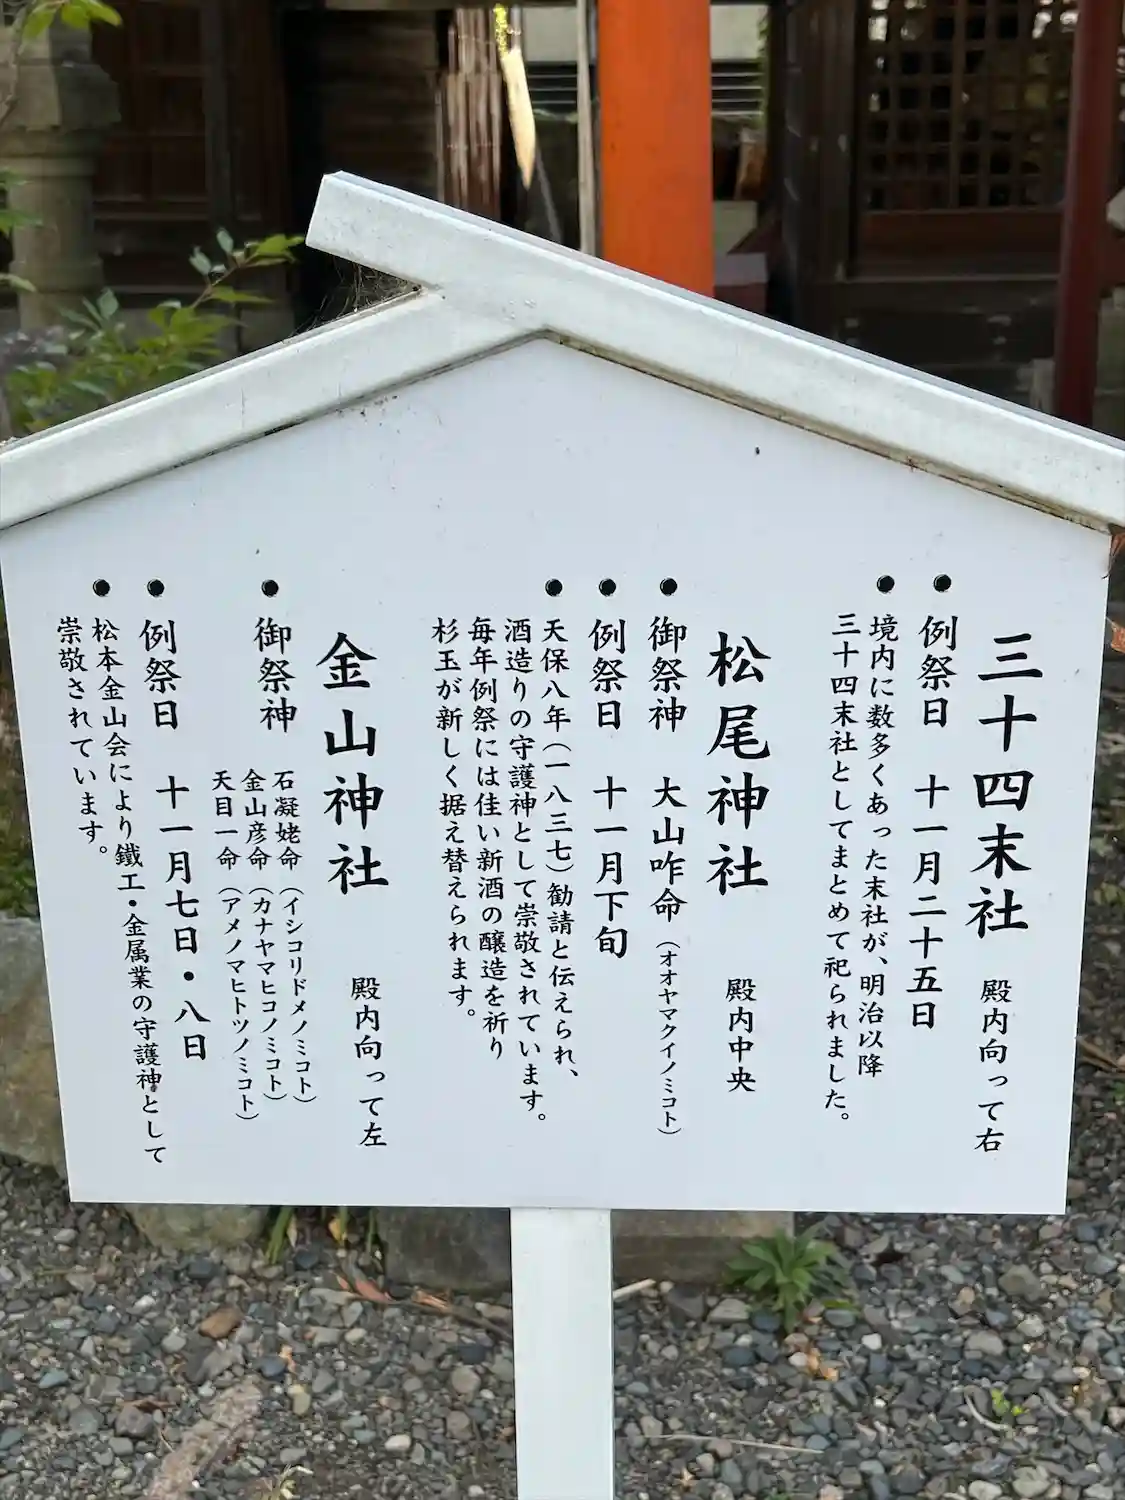 三十四末社　殿内向って右
●例祭日　十一月二十五日
●境内に数多くあった末社が、明治以降
三十四末社としてまとめて祀られました。
松尾神社　殿内中央
●御祭神　大山咋命（オオヤマクイノミコト）
●例祭日　十一月下旬
●天保八年（一八三七）勧請と伝えられ、
酒造りの守護神として崇敬されています。
毎年例祭には佳い新酒の醸造を祈り
杉玉が新しく据え替えられます。
金山神社　殿内向って左
●御祭神　石凝姥命（イシコリドメノミコト）
金山彦命（カナヤマヒコノミコト）
天目一命（アメノマヒトツノミコト）
●例祭日　十一月七日・八日
●松本金山会により鐵工・金属業の守護神として
崇敬されています。